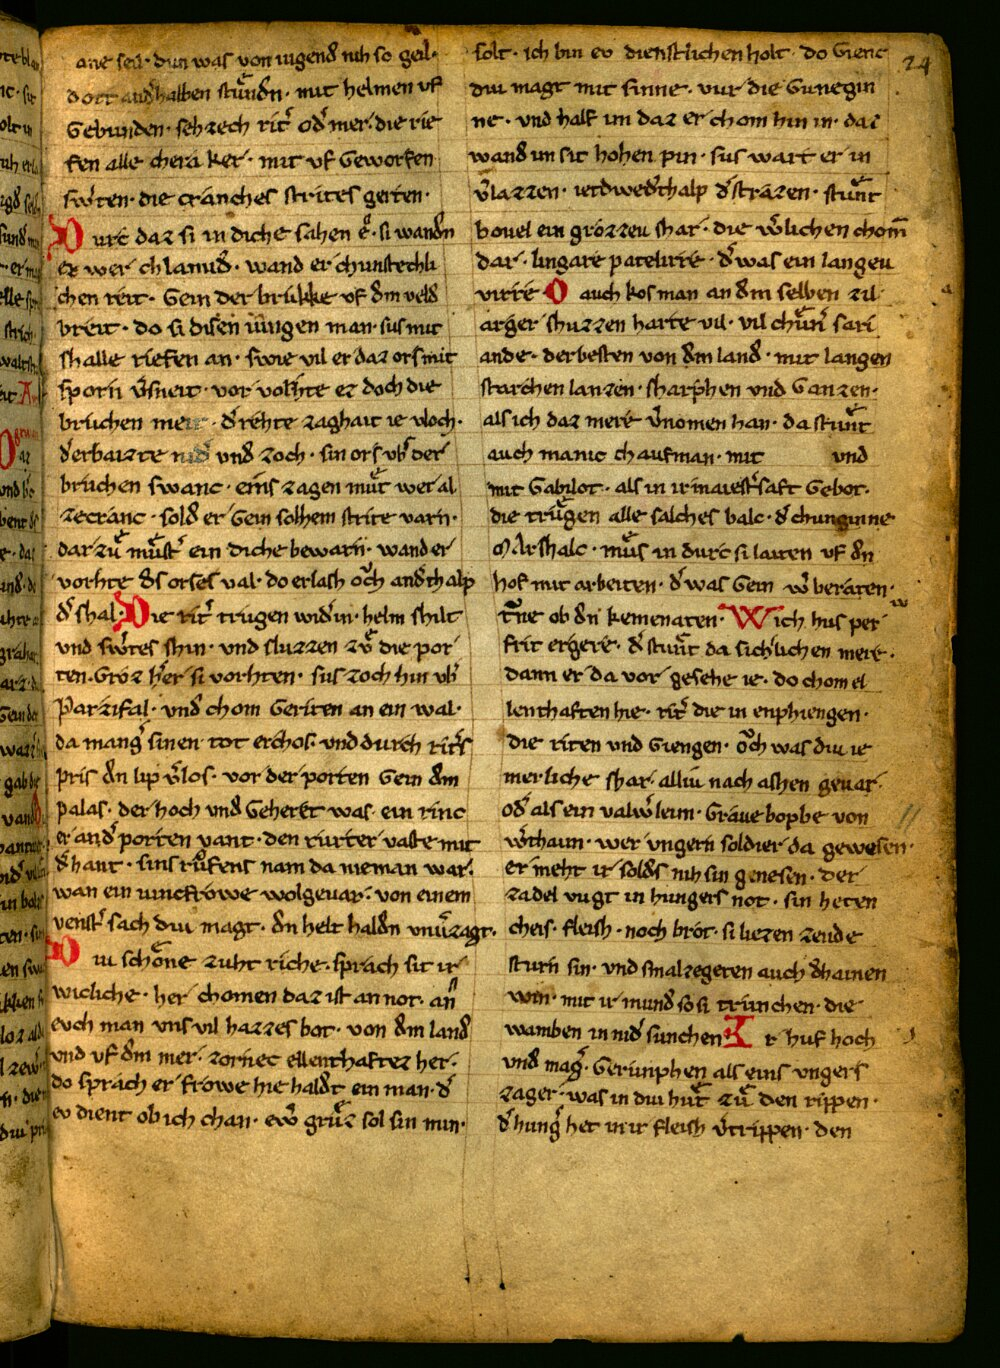 ane seil · dun was von iugend nih so geil ·
dort andhalben stůndn · mit helmen vf
Gebunden · sehzech rit̄ od̄ mer · die rie
fen alle chera ker · mit vf Geworfen
sw̄ten · die cranches strites gerten ·
Durc daz si in diche sahen e · si wandn
er wer chlamid̄ · wand er chunstechli
chen reit · Gein der brukke vf dm veld
breit · do si disen iungen man · sus mit
shalle riefen an · swie vil er daz ors mit
sporn v̄sneit · vor vorhte ez doch die
brucken · d̄ rehte zaghait ie vloch ·
d̄ erbaizte nid und zoch · sin ors vb̄ der
bruchen swanc · eins zagen můt wer al
zecranc · sold er Gein solhem strite varn ·
dar zů můst̄ ein diche bewarn · wand er
vorhte ds orses val · do erlash och and̄thalp
d̄ shal · Die rit̄ trugen wid̄ in · helm shilt
und sw̄tes shin · und sluzzen zů die por
ten · Groz h̄er si vorhten · sus zoch hin vb̄
Parzifal · und chom Geriten an ein wal ·
da mang̅ sinen tot erchos · und durch rit̄s
pris dn lip v̄los · vor der porten Gein dm
palas · der hoch und Geheret was · ein rinc
er and̄ porten vant · den rurter vaste mit
d̄ hant · sins růfens nam da nieman war ·
wan ein iuncfrowe wolgevar · von einem
venst̄ sach diu magt · dn helt haldn unv̄zagt ·
Diu schône zuht riche · sprach sit ir
wicliche · her chomen daz ist an not · an
evch man uns vil hazzes bot · von dm land
und vf dm mer · zornec ellenthaftez her ·
do sprach er frowe hie haldt ein man · d̄
ev dient ob ich chan · ew̄ grůz sol sin min ·
solt · ich bin ev dienstlichen holt · do Gienc
diu magt mit sinne · vur die Gunegin
ne · und half im daz er chom hin in · daz
wand im sit hohen pin · sus wart er in
v̄lazzen · ietdwed̄thalp d̄ strazen · stůnt
bovel ein grozzeu shar · die w̄lichen chom̄
dar · lingare patelirre · d̄ was ein langeu
virre O auch kos man an dm selben zil
arger shuzzen harte vil · vil chůn̄ sari
ande · der besten von dm land · mit langen
starchen lanzen · sharphen und Ganzen ·
als ich daz mere v̄nomen han · da stůnt
auch manic chaufman · mit und
mit Gabilot · als in ir maiest̄shaft Gebot ·
die trůgen alle salches balc · d̄ chunginne
Marshalc · můs in durc si laiten vf dn
hof mit arbeiten · d̄ was Gein w̄ beraten ·
T̄ne ob dn kemenaten · Wich hus per
frit ergere · d̄ stůnt da sich̄lichen mere ·
dann er da vor gesehe ie · do chom el
lenthaften hie · rit̄ die in enphiengen ·
die riten und Giengen · och was diu ie
merliche shar · alliu nach ashen gevar ·
od̄ als ein valw̄ leim · Grâue bopbe von
w̄thaun · wer ungern soldier da gewesen ·
er meht ir solds nih sin genesen · der
zadel vugt in hungers not · sin heten
cheis · fleish · noch brot · si liezen zende
sturn sin · und smalzegeten auch dhainen
win · mit ir mund so si trunchen · die
wamben in nid̄ sunchen Ir huf hoch
und mag̅ · Gerunphen als eins ungers
zager · was in diu hůt zů den rippen ·
d̄ hung̅ het in ir fleish v̄trippen · den
24